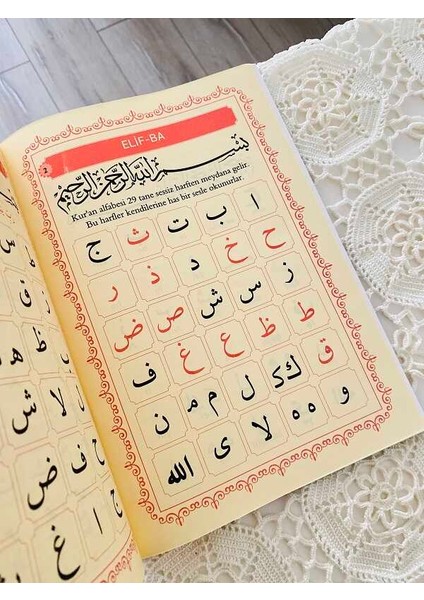 2
ELİF-BA
بسم الله الرحمن الرحيم
Kur'an alfabesi 29 tane sessiz harften meydana gelir.
Bu harfler kendilerine has bir sesle okunurlar.
ا ب ت ث ج
ح خ د ذ ر
ز س ش ص ض
ط ظ ع غ ف
ق ك ل م ن
و ه ه لا ى الله